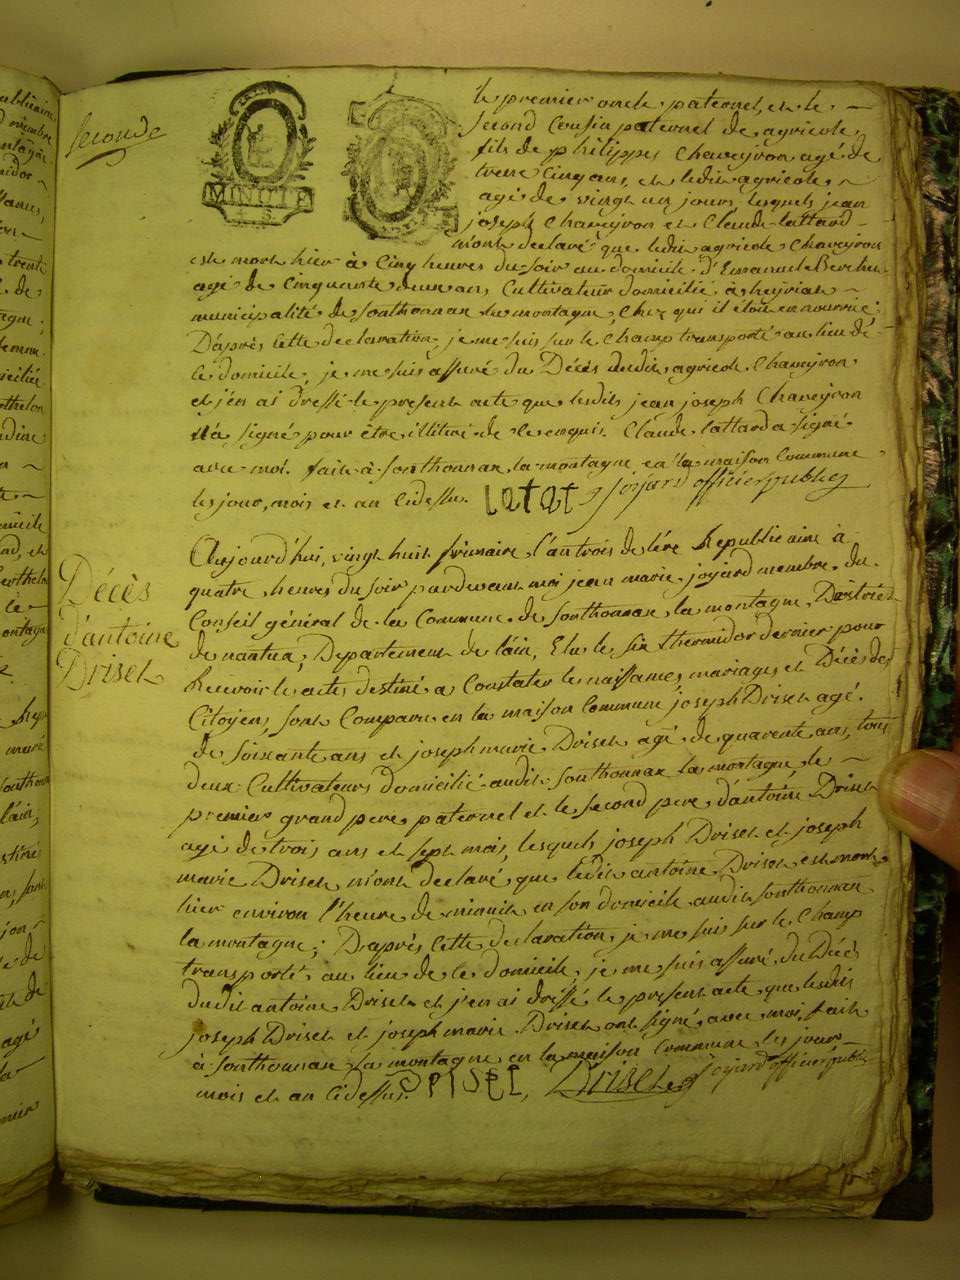 Seconde
MINUTE
le premier oncle paternel, et le
second Cousin paternel de agricole,
fils de philippes Chaveyron agé de
trente Cinq ans, et ledit agricole
agé de vingt un jours, lesquels jean
joseph Chaveyron et Claude lattard
m'ont declaré que ledit agricole Chaveyron
est mort hier à Cinq heures du soir au domicile d'Emanuel
agé de Cinquante deux ans Cultivateur domicilié à heyriat
municipalité de Sonthonnax la montagne, Chez qui il étoit en nourrice;
D'après Cette declaration, je me suis sur le Champ transporté au lieu de
Ce domicile, je me suis assuré du Décès dudit agricole Chaveyron
et j'en ai dressé le present acte que ledit jean joseph Chaveyron
n'a signé pour être illitéré de ce enquis. Claude lattard a signé
avec moi. fait à Sonthonnax la montagne en la maison Commune
les jour, mois et an Cidessus. latat joyard officier public
Décès
d'antoine
Driset
Aujourd'hui, vingt huit frimaire l'an trois de l'ére Republicaine à
quatre heures du soir pardevant moi jean marie joyard membre du
Conseil général de la Commune de Sonthonnax la montagne, District
de nantua, Departement de l'ain, Elu le six thermidor dernier pour
Recevoir le actes destiné a Constater le naissances mariages et Décès des
Citoyens, sont Comparu en la maison Commune joseph Driset agé
de soixante ans et joseph marie Driset agé de quarente ans, tous
deux Cultivateurs domicilié audit Sonthonnax la montagne, le
premier grand pere paternel et le second pere d'antoine Driset
agé de trois ans et sept mois, lesquels joseph Driset et joseph
marie Driset m'ont declaré que ledit antoine Driset est mort
hier environ l'heure de minuit en son domicile audit Sonthonnax
la montagne; D'après Cette declaration, je me suis sur le Champ
transporté au lieu de ce domicile, je me suis assuré du Décès
dudit antoine Driset et j'en ai dressé le present acte que lesdits
joseph Driset et joseph marie Driset ont signé avec moi, fait
à Sonthonnax la montagne en la maison Commune les jour
mois et an Cidessus. Driset joyard officier public